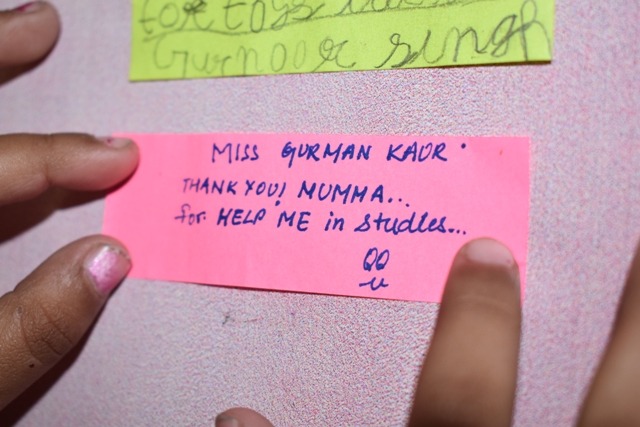 for toys
Gurnoor singh
MISS GURMAN KAUR
THANK YOU! MUMMA...
for HELP ME in studies...